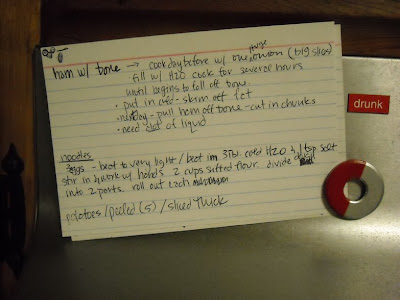 ham w/ bone → cook day before w/ one onion (big slices)
huge
· fill w/ H2O cook for several hours
until begins to fall off bone.
· put in cold - skim off fat
· next day - pull ham off bone - cut in chunks
· need alot of liquid
drunk
noodles
3 eggs - beat to very light / beat in 3 Tbl. cold H2O & 1 tsp salt
stir in & work w/ hands 2 cups sifted flour. divide dough
into 2 parts. roll out each
potatoes / peeled (5) / sliced thick